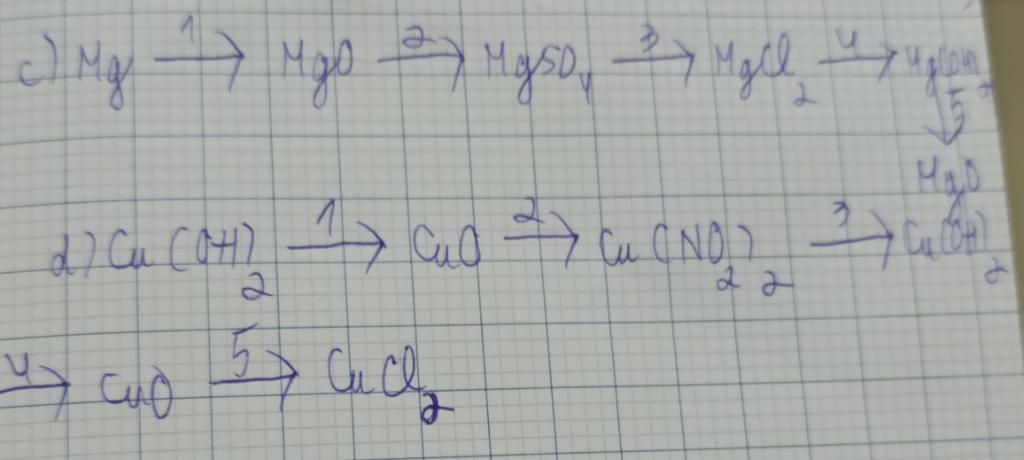 c) Mg 1→ MgO 2→ MgSO₄ 3→ MgCl₂ 4→ Mg(OH)₂
5↓
MgO
d) Cu(OH)₂ 1→ CuO 2→ Cu(NO₂)₂ 3→ Cu(OH)₂
4→ CuO 5→ CuCl₂